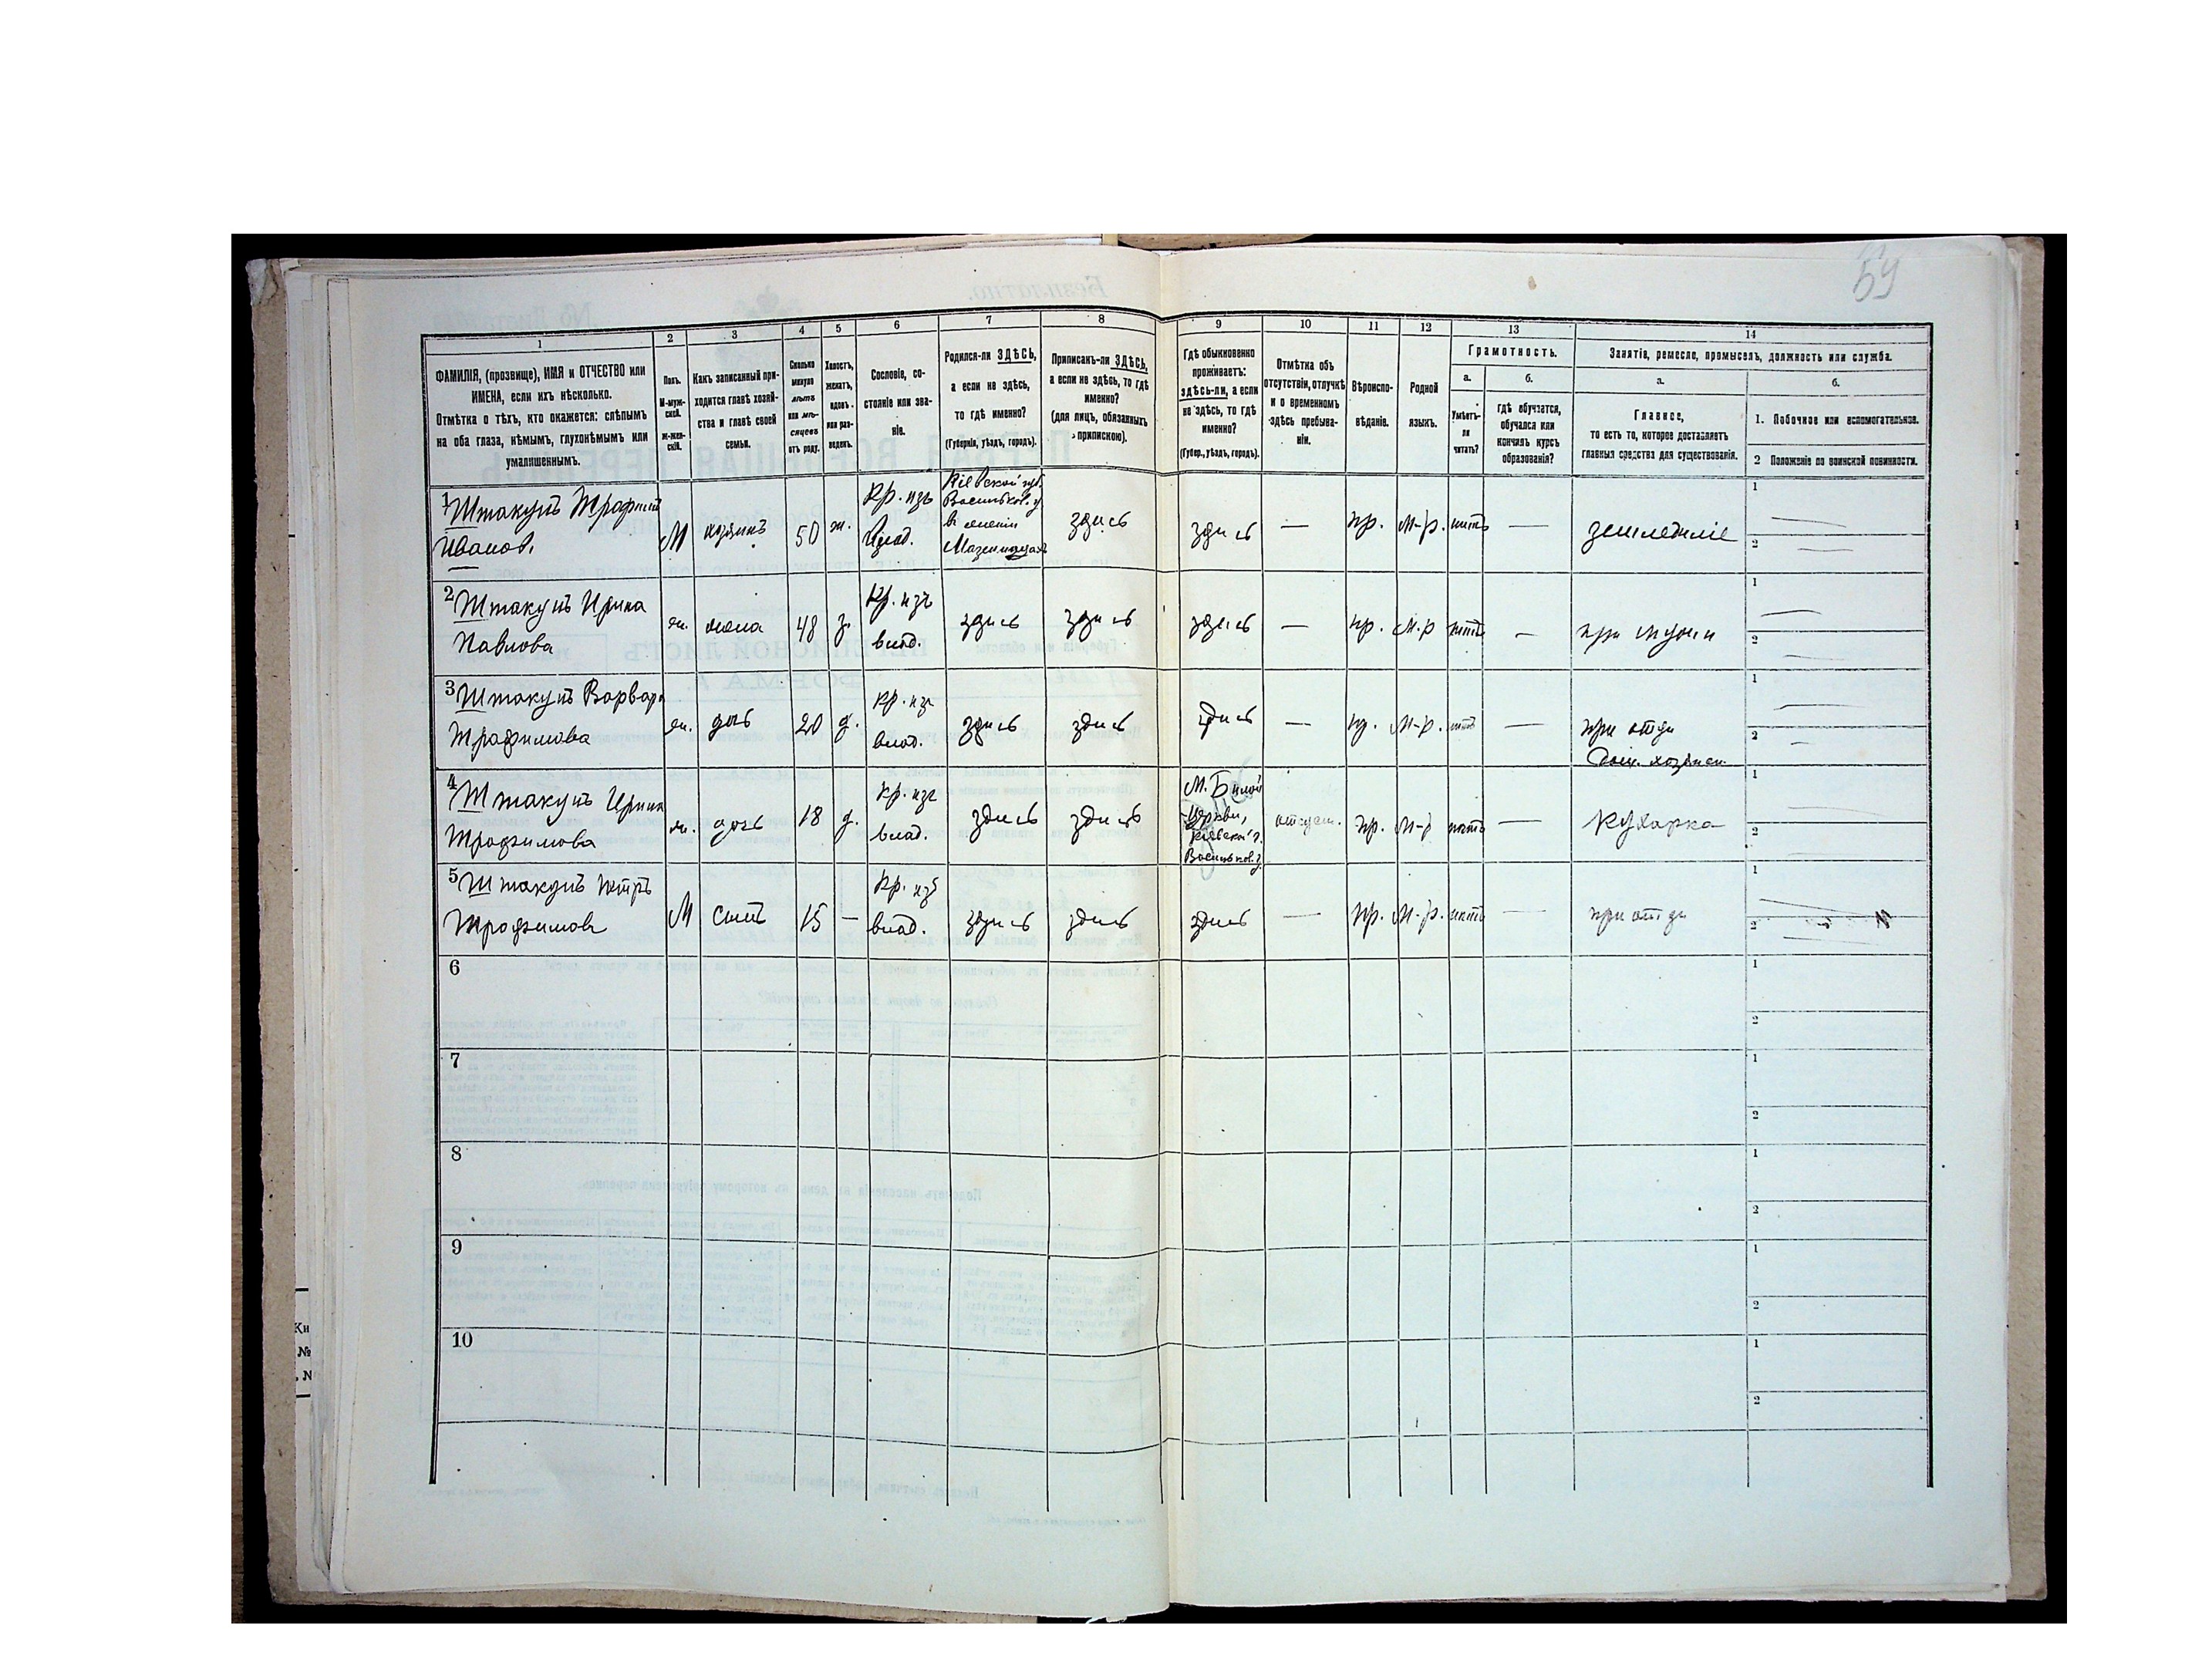 59
1 2 3 4 5 6 7 8 9 10 11 12 13 14
ФАМИЛІЯ, (прозвище), ИМЯ и ОТЧЕСТВО или
ИМЕНА, если ихъ нѣсколько.
Отмѣтка о тѣхъ, кто окажется: слѣпымъ
на оба глаза, нѣмымъ, глухонѣмымъ или
умалишеннымъ.
Полъ.
М-муж-
ской.
ж-жен-
скій.
Какъ записанный при-
ходится главѣ хозяй-
ства и главѣ своей
семьи.
Сколько
минуло
лѣтъ
или мѣ-
сяцевъ
отъ роду.
Холостъ,
женатъ,
вдовъ
или раз-
веденъ.
Сословіе, со-
стояніе или зва-
ніе.
Родился-ли ЗДѢСЬ,
а если не здѣсь,
то гдѣ именно?
(Губернія, уѣздъ, городъ).
Приписанъ-ли ЗДѢСЬ,
а если не здѣсь, то гдѣ
именно?
(для лицъ, обязанныхъ
припискою).
Гдѣ обыкновенно
проживаетъ:
здѣсь-ли, а если
не здѣсь, то гдѣ
именно?
(Губер., уѣздъ, городъ).
Отмѣтка объ
отсутствіи, отлучкѣ
и о временномъ
здѣсь пребыва-
ніи.
Вѣроиспо-
вѣданіе.
Родной
языкъ.
Грамотность.
а.
Умѣетъ-
ли
читать?
б.
гдѣ обучается,
обучался или
кончилъ курсъ
образованія?
Занятіе, ремесло, промыселъ, должность или служба.
а.
Главное,
то есть то, которое доставляетъ
главныя средства для существованія.
б.
1. Побочное или вспомогательное.
2 Положеніе по воинской повинности.
1 Штакунъ Трафим
Иванов.
М
хозяинъ
50
ж.
Кр. изъ
влад.
Кіевской губ.
Васильков. у.
здѣсь
здѣсь
—
пр.
М-р.
нѣтъ
—
земледѣліе
1
2
2 Штакунъ Ирина
Павлова
ж.
жена
48
з.
Кр. изъ
влад.
здѣсь
здѣсь
здѣсь
—
пр.
М-р
нѣтъ
—
при мужѣ
1
2
3 Штакунъ Варвара
Трафимова
ж.
дочь
20
д.
Кр. изъ
влад.
здѣсь
здѣсь
здѣсь
—
пр.
М-р.
нѣтъ
—
при отцѣ
1
2
4 Штакунъ Ирина
Трофимова
ж.
дочь
18
д.
Кр. изъ
влад.
здѣсь
здѣсь
М. Бѣлой
Церкви,
Кіевской г.
Васильков. у.
отсут.
пр.
М-р
нѣтъ
—
кухарка
1
2
5 Штакунъ Петръ
Трофимовъ
М
сынъ
15
—
Кр. изъ
влад.
здѣсь
здѣсь
здѣсь
—
пр.
М-р.
нѣтъ
—
при отцѣ
1
2
6
1
2
7
1
2
8
1
2
9
1
2
10
1
2